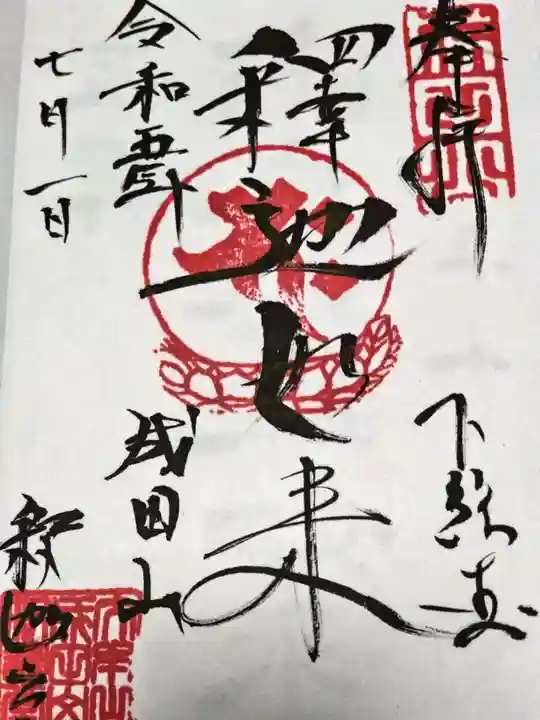 奉拝
下総国
釋迦如来
令和五歳
七月一日
成田山
釈迦堂